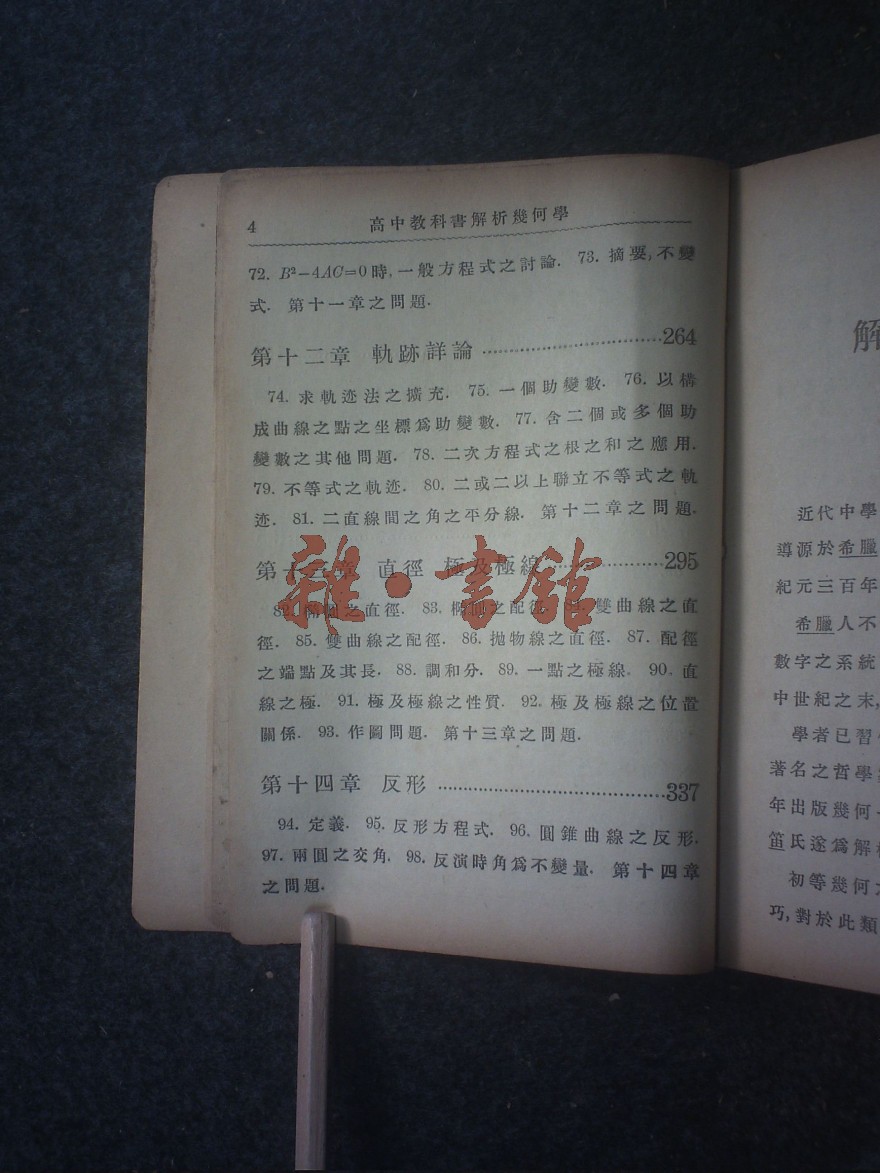 4 高中教科書解析幾何學
72. B²－4AC=0時,一般方程式之討論. 73. 摘要,不變
式. 第十一章之問題.
第十二章 軌跡詳論 ································264
74. 求軌迹法之擴充. 75. 一個助變數. 76. 以構
成曲線之點之坐標爲助變數. 77. 含二個或多個助
變數之其他問題. 78. 二次方程式之根之和之應用.
79. 不等式之軌迹. 80. 二或二以上聯立不等式之軌
迹. 81. 二直線間之角之平分線. 第十二章之問題.
第十三章 直徑 極及極線 ····················295
82. 橢圓之直徑. 83. 橢圓之配徑. 84. 雙曲線之直
徑. 85. 雙曲線之配徑. 86. 拋物線之直徑. 87. 配徑
之端點及其長. 88. 調和分. 89. 一點之極線. 90. 直
線之極. 91. 極及極線之性質. 92. 極及極線之位置
關係. 93. 作圖問題. 第十三章之問題.
第十四章 反形 ········································337
94. 定義. 95. 反形方程式. 96. 圓錐曲線之反形.
97. 兩圓之交角. 98. 反演時角爲不變量. 第十四章
之問題.
雜·書館
解
近代中學
導源於希臘
紀元三百年
希臘人不
數字之系統
中世紀之末,
學者已習
著名之哲學
年出版幾何
笛氏遂爲解
初等幾何
巧,對於此類